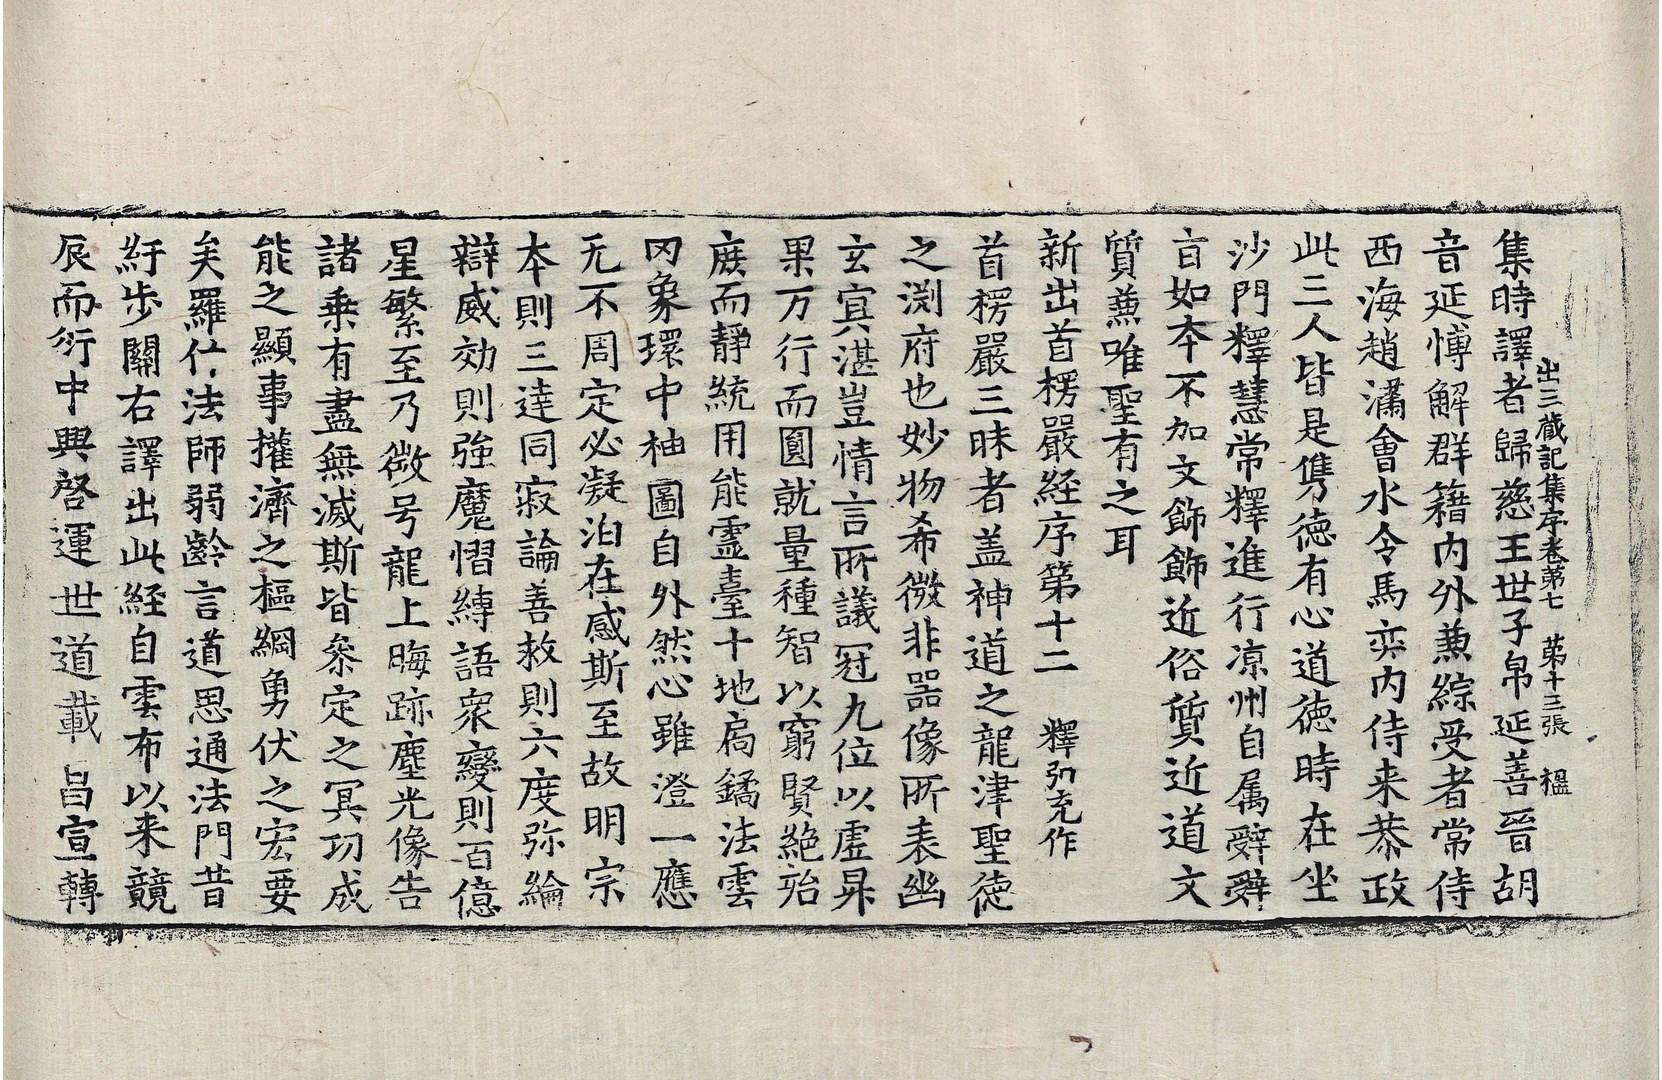 出三蔵記集序卷第七　第十三張　榲
集時譯者歸慈王世子帛延善晉胡
音延愽解群籍內外兼綜受者常侍
西海趙瀟會水令馬亦內侍来恭政
此三人皆是儁德有心道德時在坐
沙門釋慧常釋進行凉州自属辭辭
言如本不加文飾飾近俗質近道文
質兼唯聖有之耳
新出首楞嚴経序第十二　釋弘充作
首楞嚴三昧者盖神道之龍津聖德
之渕府也妙物希微非器像所表幽
玄冥湛豈情言所議冠九位以虛昇
果万行而圓就量種智以窮賢絶殆
庶而靜統用能靈臺十地扃鐍法雲
罔象環中柚圖自外然心雖澄一應
无不周定必凝泊在感斯至故明宗
本則三達同寂論善救則六度弥綸
辯威効則強魔慴縛語衆變則百億
星繁至乃微号龍上晦跡塵光像告
諸乗有盡無滅斯皆叅定之冥功成
能之顯事摧濟之樞綱勇伏之宏要
矣羅什法師弱齡言道思通法門昔
紆步關右譯出此経自雲布以来競
辰而衍中興啓運世道載昌宣轉